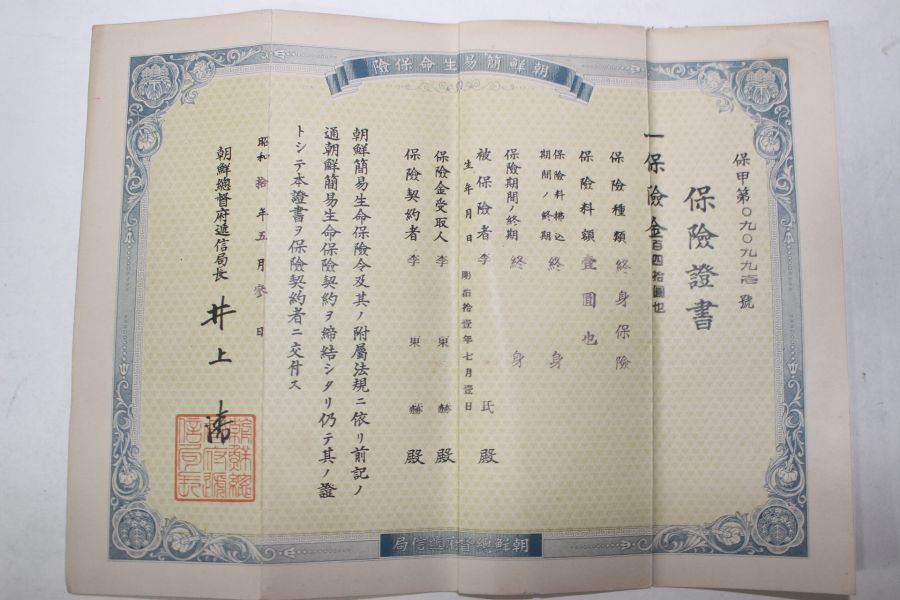 朝鮮簡易生命保險
保甲第〇九〇九九
號
保險證書
一保險金百四拾圓也
保險種類 終身保險
保險料額 壹圓也
保險料拂込期間ノ終期 終身
保險期間ノ終期 終身
被保險者 李 氏 殿
生年月日 明治拾壹年七月壹日
保險金受取人 李東赫 殿
保險契約者 李東赫 殿
朝鮮簡易生命保險令及其ノ附屬法規ニ依リ前記ノ
通朝鮮簡易生命保險契約ヲ締結シタリ仍テ其ノ證
トシテ本證書ヲ保險契約者ニ交付ス
昭和拾年五月參日
朝鮮總督府遞信局長 井上清
朝鮮總督府遞信局